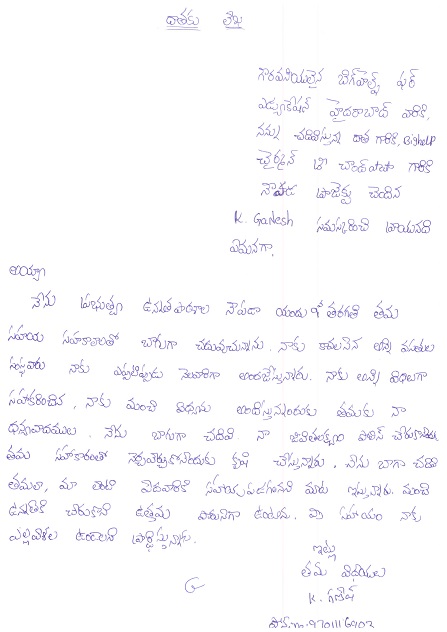 దాతకు లేఖ
గౌరవనీయులైన బిగ్‌హెల్ప్ ఫర్
ఎడ్యుకేషన్ హైదరాబాద్ వారికి,
నన్ను చదివిస్తున్న దాత గారికి, BigheLP
చైర్మన్ శ్రీ చాంద్‌పాషా గారికి
నౌపడ ప్రాజెక్టు చెందిన
K. Ganesh నమస్కరించి వ్రాయునది
ఏమనగా,
అయ్యా
నేను ప్రభుత్వ ఉన్నత పాఠశాల నౌపడా యందు తరగతి తమ
సహాయ సహకారాలతో బాగుగా చదువుచున్నాను. నాకు కావలసిన అన్ని వసతులు
సంస్థవారు నాకు ఎప్పటికప్పుడు నెలవారిగా అందజేస్తున్నారు. నాకు అన్ని విధాలుగా
సహకరించిన, నాకు మంచి విద్యను అందిస్తున్నందుకు తమకు నా
ధన్యవాదములు. నేను బాగుగా చదివి నా జీవితలక్ష్యం
తమ సహకారంతో నెరవేర్చుకొనేందుకు కృషి చేస్తున్నాను, నేను బాగా చదివి
తమలా, మా వంటి పేదవారికి సహాయపడగలనని మాట ఇస్తున్నాను. మంచి
ఉన్నతికి చేరుకొని ఉత్తమ పౌరునిగా ఉంటాను. మీ సహాయం నాకు
ఎల్లవేళల ఉండాలని ప్రార్థిస్తున్నాను.
ఇట్లు
తమ విధేయుడు
K. గణేష్
ఫోన్.నం. 9701116903